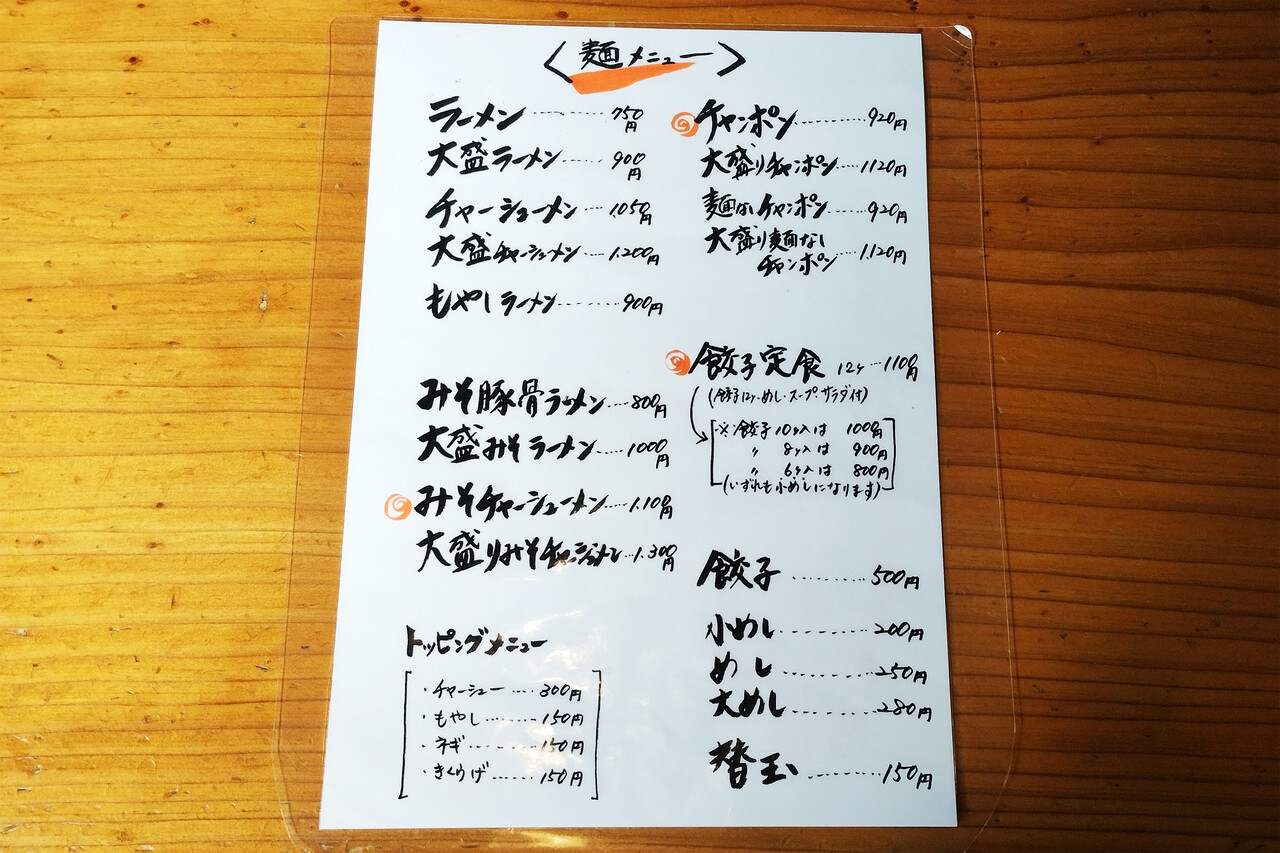 〈麺メニュー〉
ラーメン--------750円
大盛ラーメン-----900円
チャーシューメン---1,050円
大盛チャーシューメン---1,200円
もやしラーメン-------900円
みそ豚骨ラーメン----800円
大盛みそラーメン----1000円
みそチャーシューメン---1,100円
大盛りみそチャーシューメン---1,300円
トッピングメニュー
・チャーシュー----300円
・もやし-------150円
・ネギ---------150円
・きくらげ------150円
チャンポン---------920円
大盛りチャンポン----1120円
麺なしチャンポン----920円
大盛り麺なし
チャンポン----1,120円
餃子定食 12ケ---1100円
(餃子12ケ・めし・スープ・サラダ付)
※餃子10ケ入は 1000円
〃 8ケ入は 900円
〃 6ケ入は 800円
(いずれも小めしになります)
餃子---------500円
小めし---------200円
めし---------250円
大めし---------280円
替玉--------150円